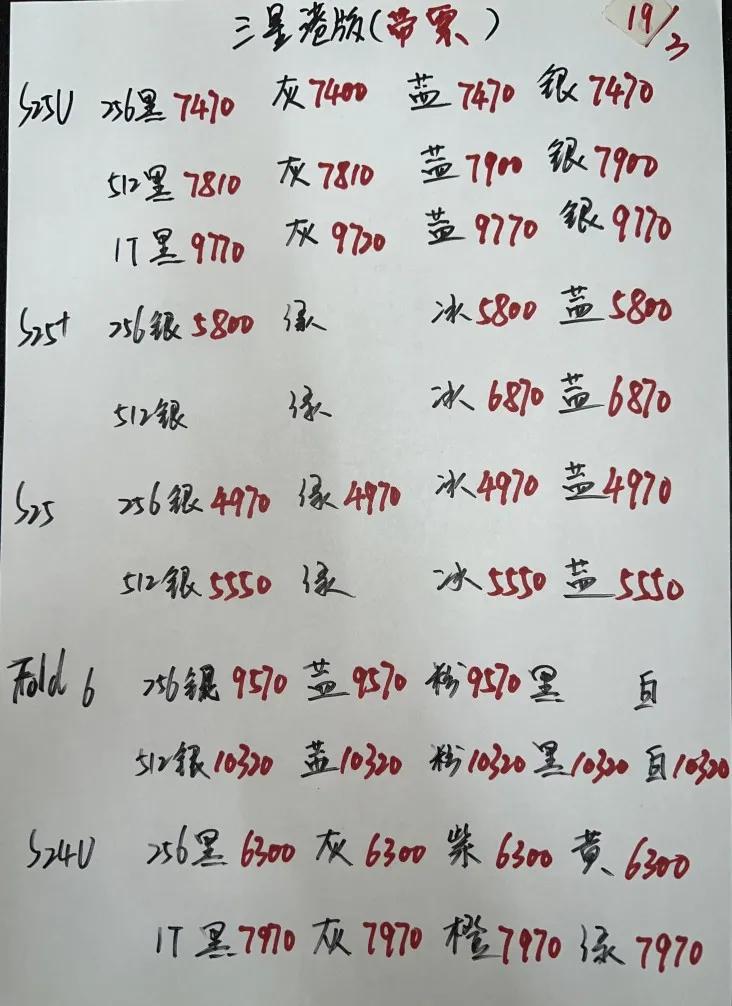 三星港版(带票) 19/3
S25U 256黑7470 灰7400 蓝7470 银7470
512黑7810 灰7810 蓝7900 银7900
1T黑9770 灰9720 蓝9770 银9770
S25+ 256银5800 绿 冰5800 蓝5800
512银 绿 冰6870 蓝6870
S25 256银4970 绿4970 冰4970 蓝4970
512银5550 绿 冰5550 蓝5550
Fold 6 256银9570 蓝9570 粉9570 黑 白
512银10320 蓝10320 粉10320 黑10320 白10320
S24U 256黑6300 灰6300 紫6300 黄6300
1T黑7970 灰7970 橙7970 绿7970